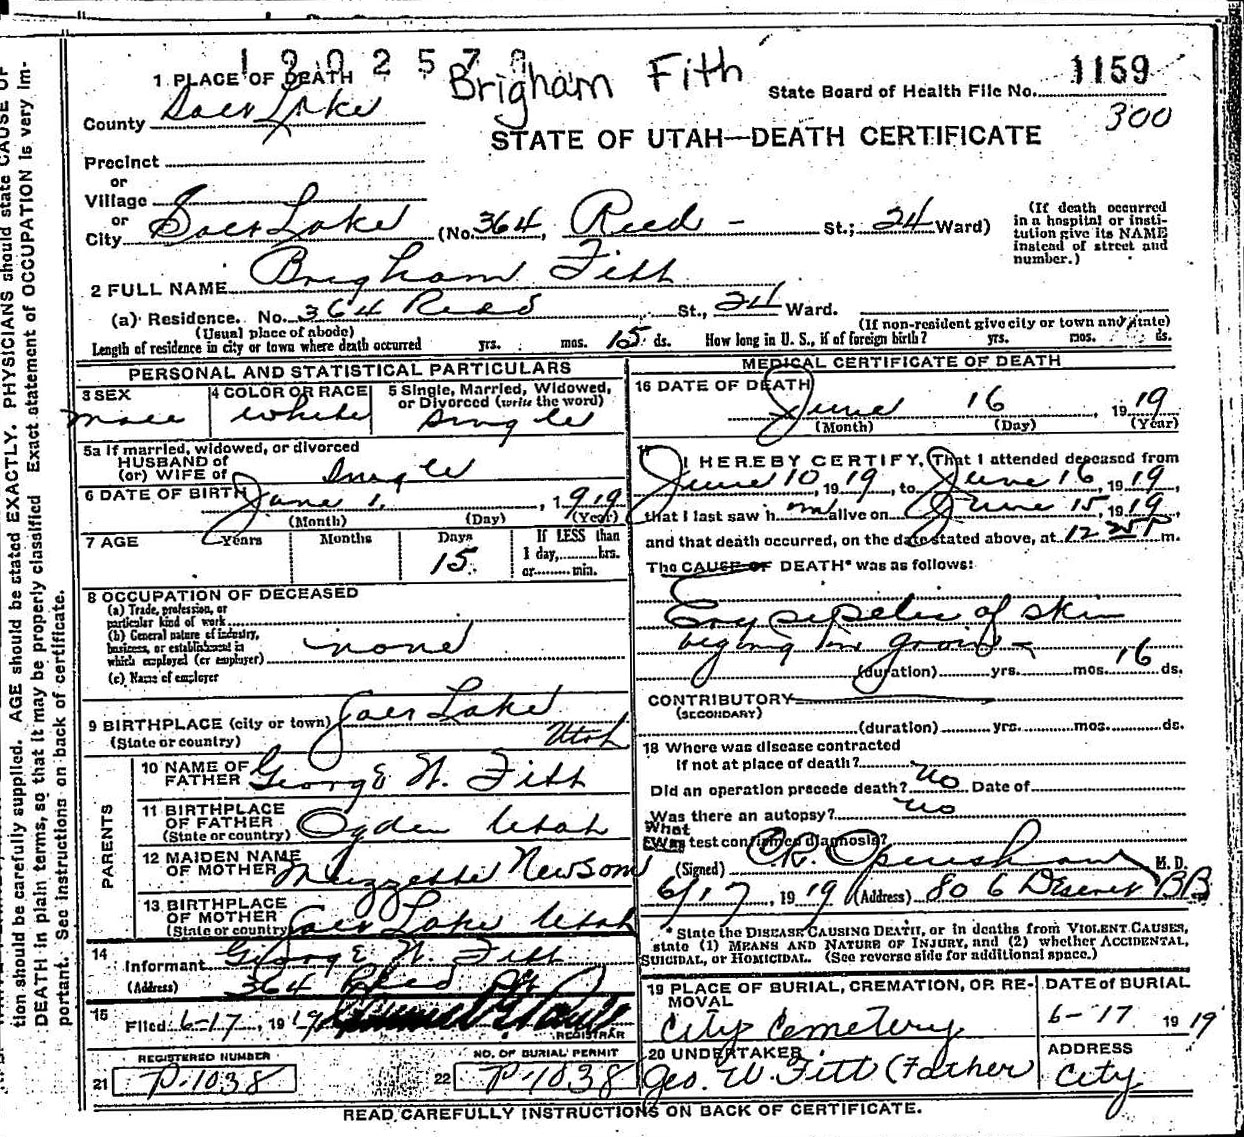 1202579
Brigham Fith
1 PLACE OF DEATH
State Board of Health File No. 1159
300
County Salt Lake
STATE OF UTAH—DEATH CERTIFICATE
Precinct
or
Village
or
City Salt Lake (No. 364, Reed - St.; 24 Ward)
(If death occurred in a hospital or insti-
tution give its NAME
instead of street and
number.)
2 FULL NAME Brigham Fitt
(a) Residence. No. 364 Reed St., 24 Ward.
(Usual place of abode) (If non-resident give city or town and state)
Length of residence in city or town where death occurred yrs. mos. 15 ds. How long in U. S., if of foreign birth? yrs. mos. ds.
PERSONAL AND STATISTICAL PARTICULARS
3 SEX male
4 COLOR OR RACE white
5 Single, Married, Widowed,
or Divorced (write the word)
single
5a If married, widowed, or divorced
HUSBAND of
(or) WIFE of single
6 DATE OF BIRTH June 1, 1919
(Month) (Day) (Year)
7 AGE Years Months Days 15
If LESS than
1 day,........hrs.
or........min.
8 OCCUPATION OF DECEASED
(a) Trade, profession, or
particular kind of work
(b) General nature of industry,
business, or establishment in
which employed (or employer) none
(c) Name of employer
9 BIRTHPLACE (city or town) Salt Lake
(State or country) Utah
PARENTS
10 NAME OF
FATHER George W. Fitt
11 BIRTHPLACE
OF FATHER
(State or country) Ogden Utah
12 MAIDEN NAME
OF MOTHER Muzzette Newsom
13 BIRTHPLACE
OF MOTHER
(State or country) Salt Lake Utah
14
Informant George W. Fitt
(Address) 364 Reed St
15
Filed 6-17, 1919
REGISTRAR
REGISTERED NUMBER
21 P-1038
NO. OF BURIAL PERMIT
22 P-1038
MEDICAL CERTIFICATE OF DEATH
16 DATE OF DEATH
June 16, 1919
(Month) (Day) (Year)
17 I HEREBY CERTIFY, That I attended deceased from
June 10, 1919, to June 16, 1919,
that I last saw him alive on June 15, 1919,
and that death occurred, on the date stated above, at 12 25 P m.
The CAUSE OF DEATH* was as follows:
Erysipelas of skin
begining in groin
(duration) yrs. mos. 16 ds.
CONTRIBUTORY
(SECONDARY)
(duration) yrs. mos. ds.
18 Where was disease contracted
If not at place of death?
Did an operation precede death? no Date of
Was there an autopsy? no
What
test confirmed diagnosis?
(Signed) C.R. Openshaw M. D.
6/17, 1919 (Address) 806 Deseret BB
* State the DISEASE CAUSING DEATH, or in deaths from VIOLENT CAUSES,
state (1) MEANS AND NATURE OF INJURY, and (2) whether ACCIDENTAL,
SUICIDAL, or HOMICIDAL. (See reverse side for additional space.)
19 PLACE OF BURIAL, CREMATION, OR RE-
MOVAL
City Cemetery
DATE of BURIAL
6-17 1919
20 UNDERTAKER
Geo. W. Fitt (Father
ADDRESS
City
READ CAREFULLY INSTRUCTIONS ON BACK OF CERTIFICATE.
tion should be carefully supplied. AGE should be stated EXACTLY. PHYSICIANS should state CAUSE OF
DEATH in plain terms, so that it may be properly classified Exact statement of OCCUPATION is very im-
portant. See instructions on back of certificate.